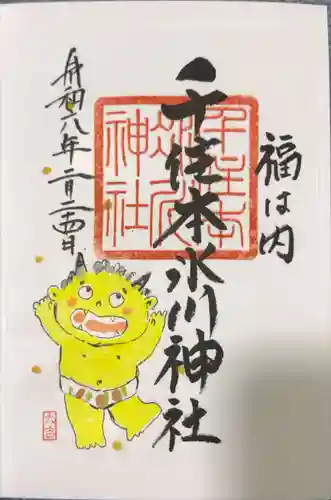 福は内
千住本氷川神社
令和六年二月二四日
千住本
氷川
神社